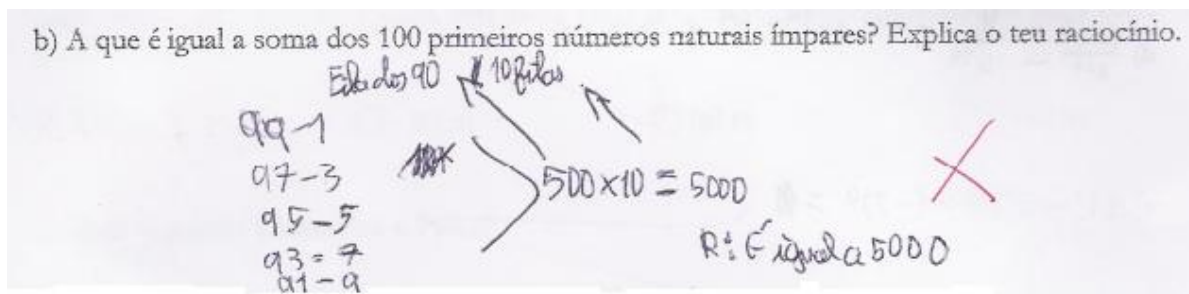 b) A que é igual a soma dos 100 primeiros números naturais ímpares? Explica o teu raciocínio.
Fila dos 90 10 filas
99-1
97-3
95-5
93=7
91-9
500×10=5000
R: É igual a 5000